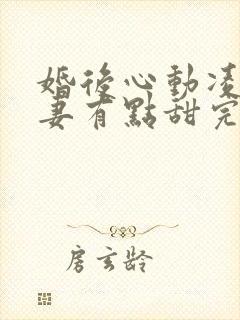 婚後心動凌
妻有點甜完
房玄齡